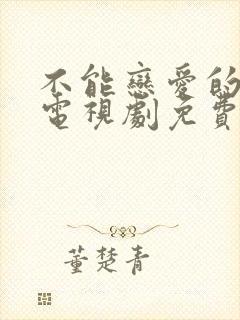 不能戀愛的
電視劇免費
董楚青